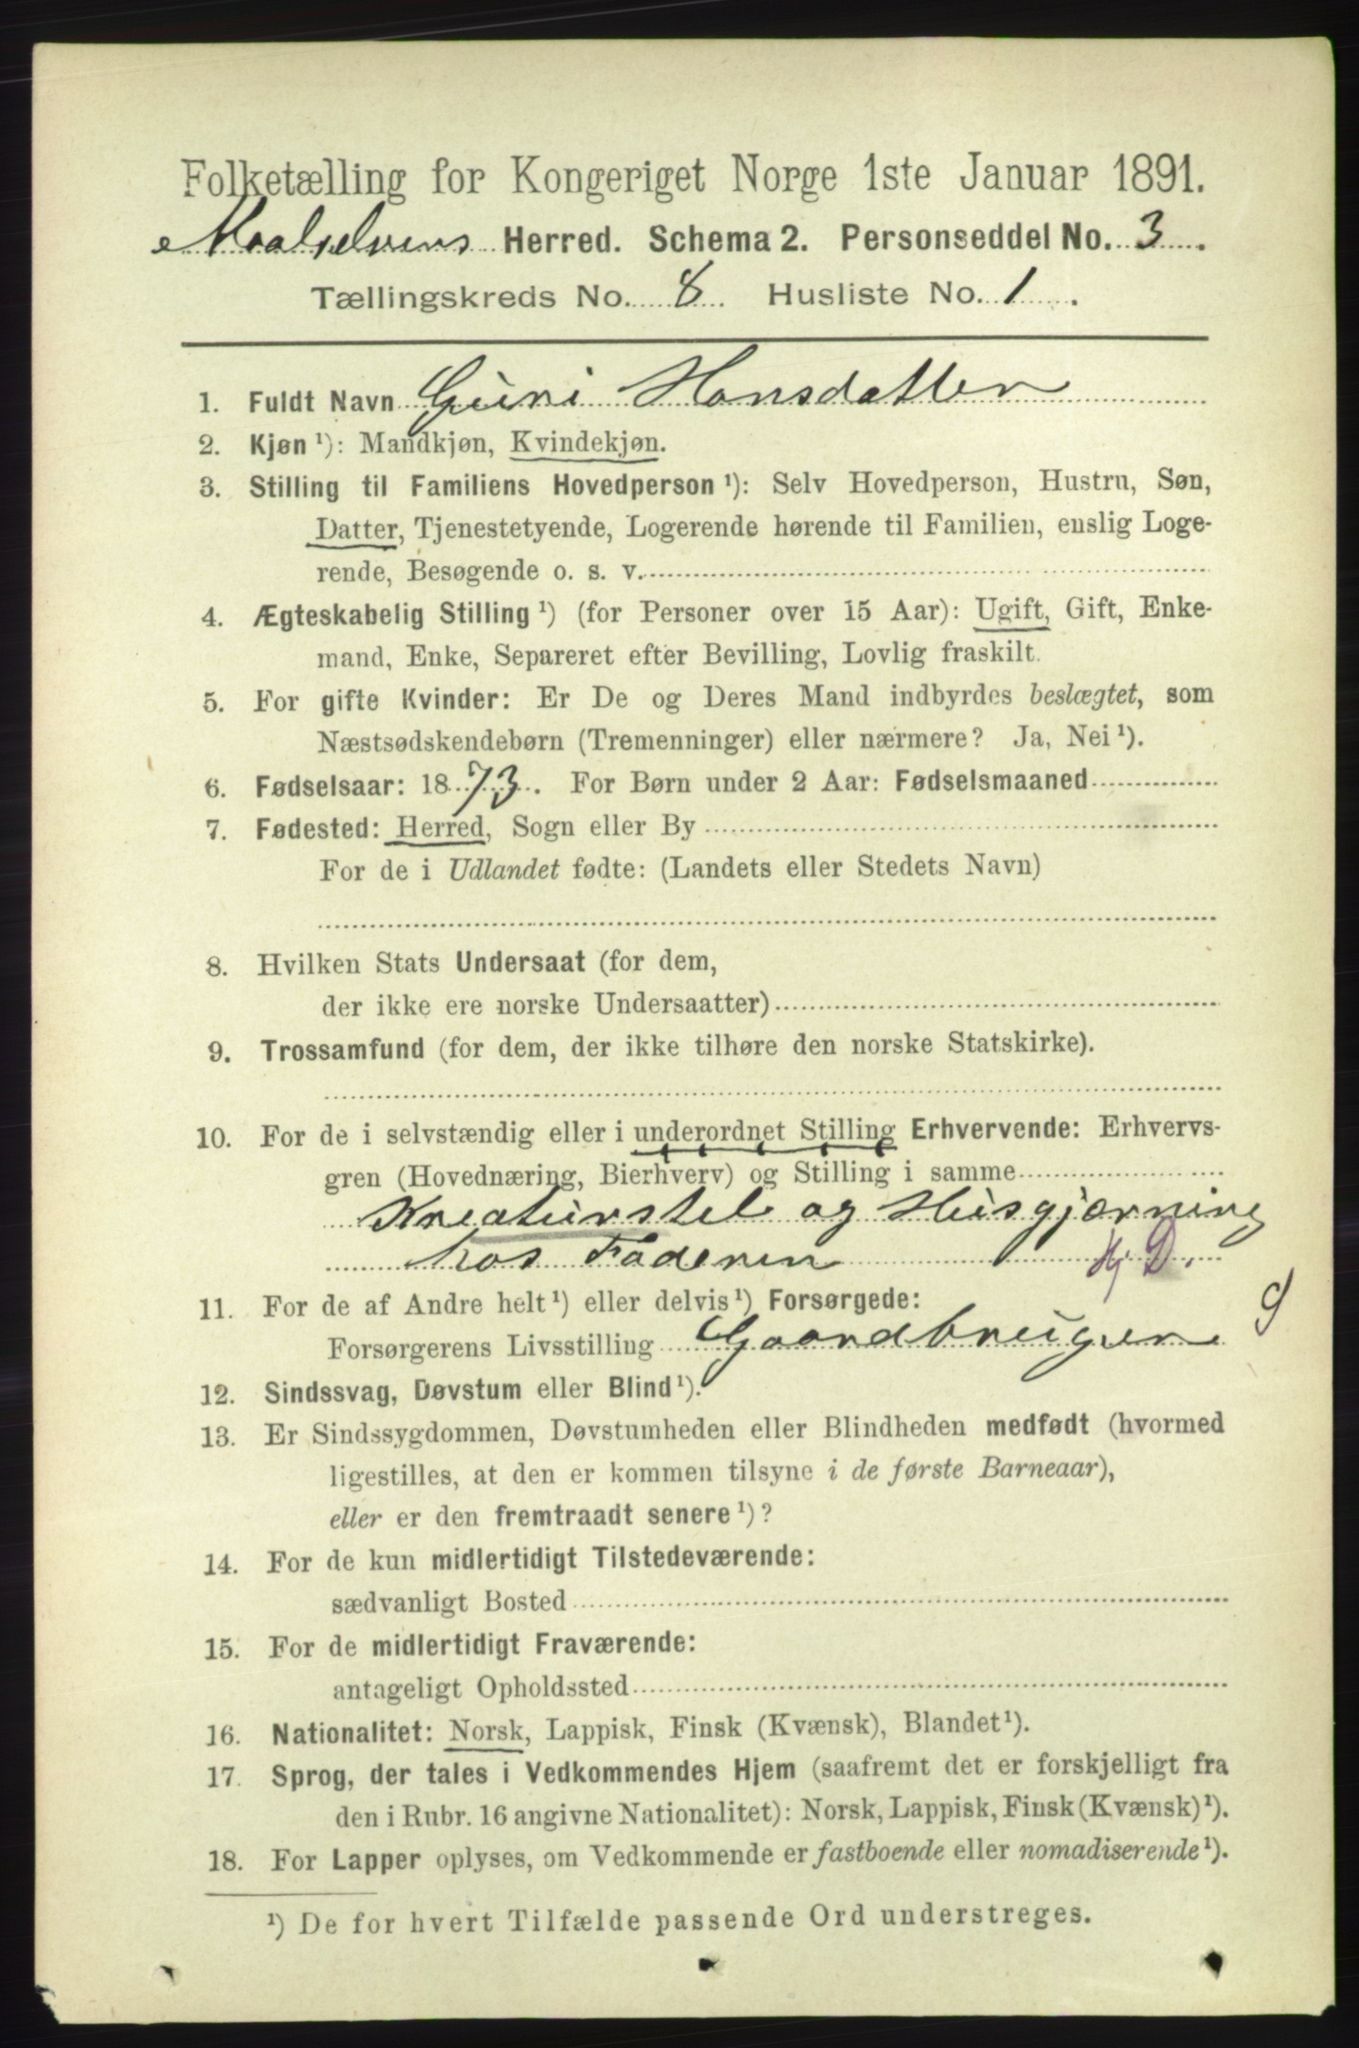 Folketælling for Kongeriget Norge 1ste Januar 1891.
Maalselvens Herred. Schema 2. Personseddel No. 3.
Tællingskreds No. 8 Husliste No. 1.
1. Fuldt Navn Guri Hansdatter
2. Kjøn ¹): Mandkjøn, Kvindekjøn.
3. Stilling til Familiens Hovedperson ¹): Selv Hovedperson, Hustru, Søn,
Datter, Tjenestetyende, Logerende hørende til Familien, enslig Loge-
rende, Besøgende o. s. v.
4. Ægteskabelig Stilling ¹) (for Personer over 15 Aar): Ugift, Gift, Enke-
mand, Enke, Separeret efter Bevilling, Lovlig fraskilt.
5. For gifte Kvinder: Er De og Deres Mand indbyrdes beslægtet, som
Næstsødskendebørn (Tremenninger) eller nærmere? Ja, Nei ¹).
6. Fødselsaar: 1873. For Børn under 2 Aar: Fødselsmaaned
7. Fødested: Herred, Sogn eller By
For de i Udlandet fødte: (Landets eller Stedets Navn)
8. Hvilken Stats Undersaat (for dem,
der ikke ere norske Undersaatter)
9. Trossamfund (for dem, der ikke tilhøre den norske Statskirke).
10. For de i selvstændig eller i underordnet Stilling Erhvervende: Erhvervs-
gren (Hovednæring, Bierhverv) og Stilling i samme
Kreaturstel og Husgjærning
hos Faderen Hj. D.
11. For de af Andre helt ¹) eller delvis ¹) Forsørgede:
Forsørgerens Livsstilling Gaardbruger
12. Sindssvag, Døvstum eller Blind ¹).
13. Er Sindssygdommen, Døvstumheden eller Blindheden medfødt (hvormed
ligestilles, at den er kommen tilsyne i de første Barneaar),
eller er den fremtraadt senere ¹)?
14. For de kun midlertidigt Tilstedeværende:
sædvanligt Bosted
15. For de midlertidigt Fraværende:
antageligt Opholdssted
16. Nationalitet: Norsk, Lappisk, Finsk (Kvænsk), Blandet ¹).
17. Sprog, der tales i Vedkommendes Hjem (saafremt det er forskjelligt fra
den i Rubr. 16 angivne Nationalitet): Norsk, Lappisk, Finsk (Kvænsk) ¹).
18. For Lapper oplyses, om Vedkommende er fastboende eller nomadiserende ¹).
¹) De for hvert Tilfælde passende Ord understreges.